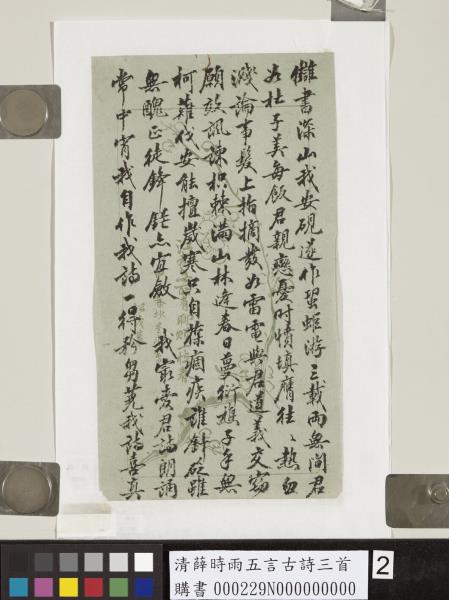 讎書深山我安硯遂作蛩蚷游三載兩無間君
如杜子美每飯君親戀憂時憤填膺往〻熱血
濺論事髮上指摘發如雷電與君道義交勖
願效諷諫枳棘滿山林逢春日蔓衍樵子手無
柯薙伐安能擅歲寒只自葆痼疾誰針砭雖
無醜正徒鋒鋩亦宜斂 我最愛君詩朗誦
常中宵我自作我詩一得矜芻蕘我詩喜真
清薛時雨五言古詩三首
購書 000229N000000000
2